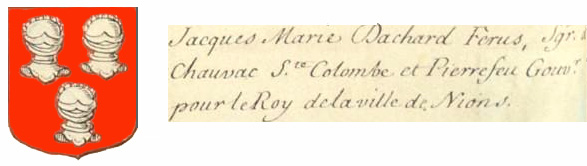 Jacques Marie Dachard Férus, Sgr. d
Chauvac S.te Colombe et Pierrefeu Gouvr.
pour le Roy de la ville de Nions.